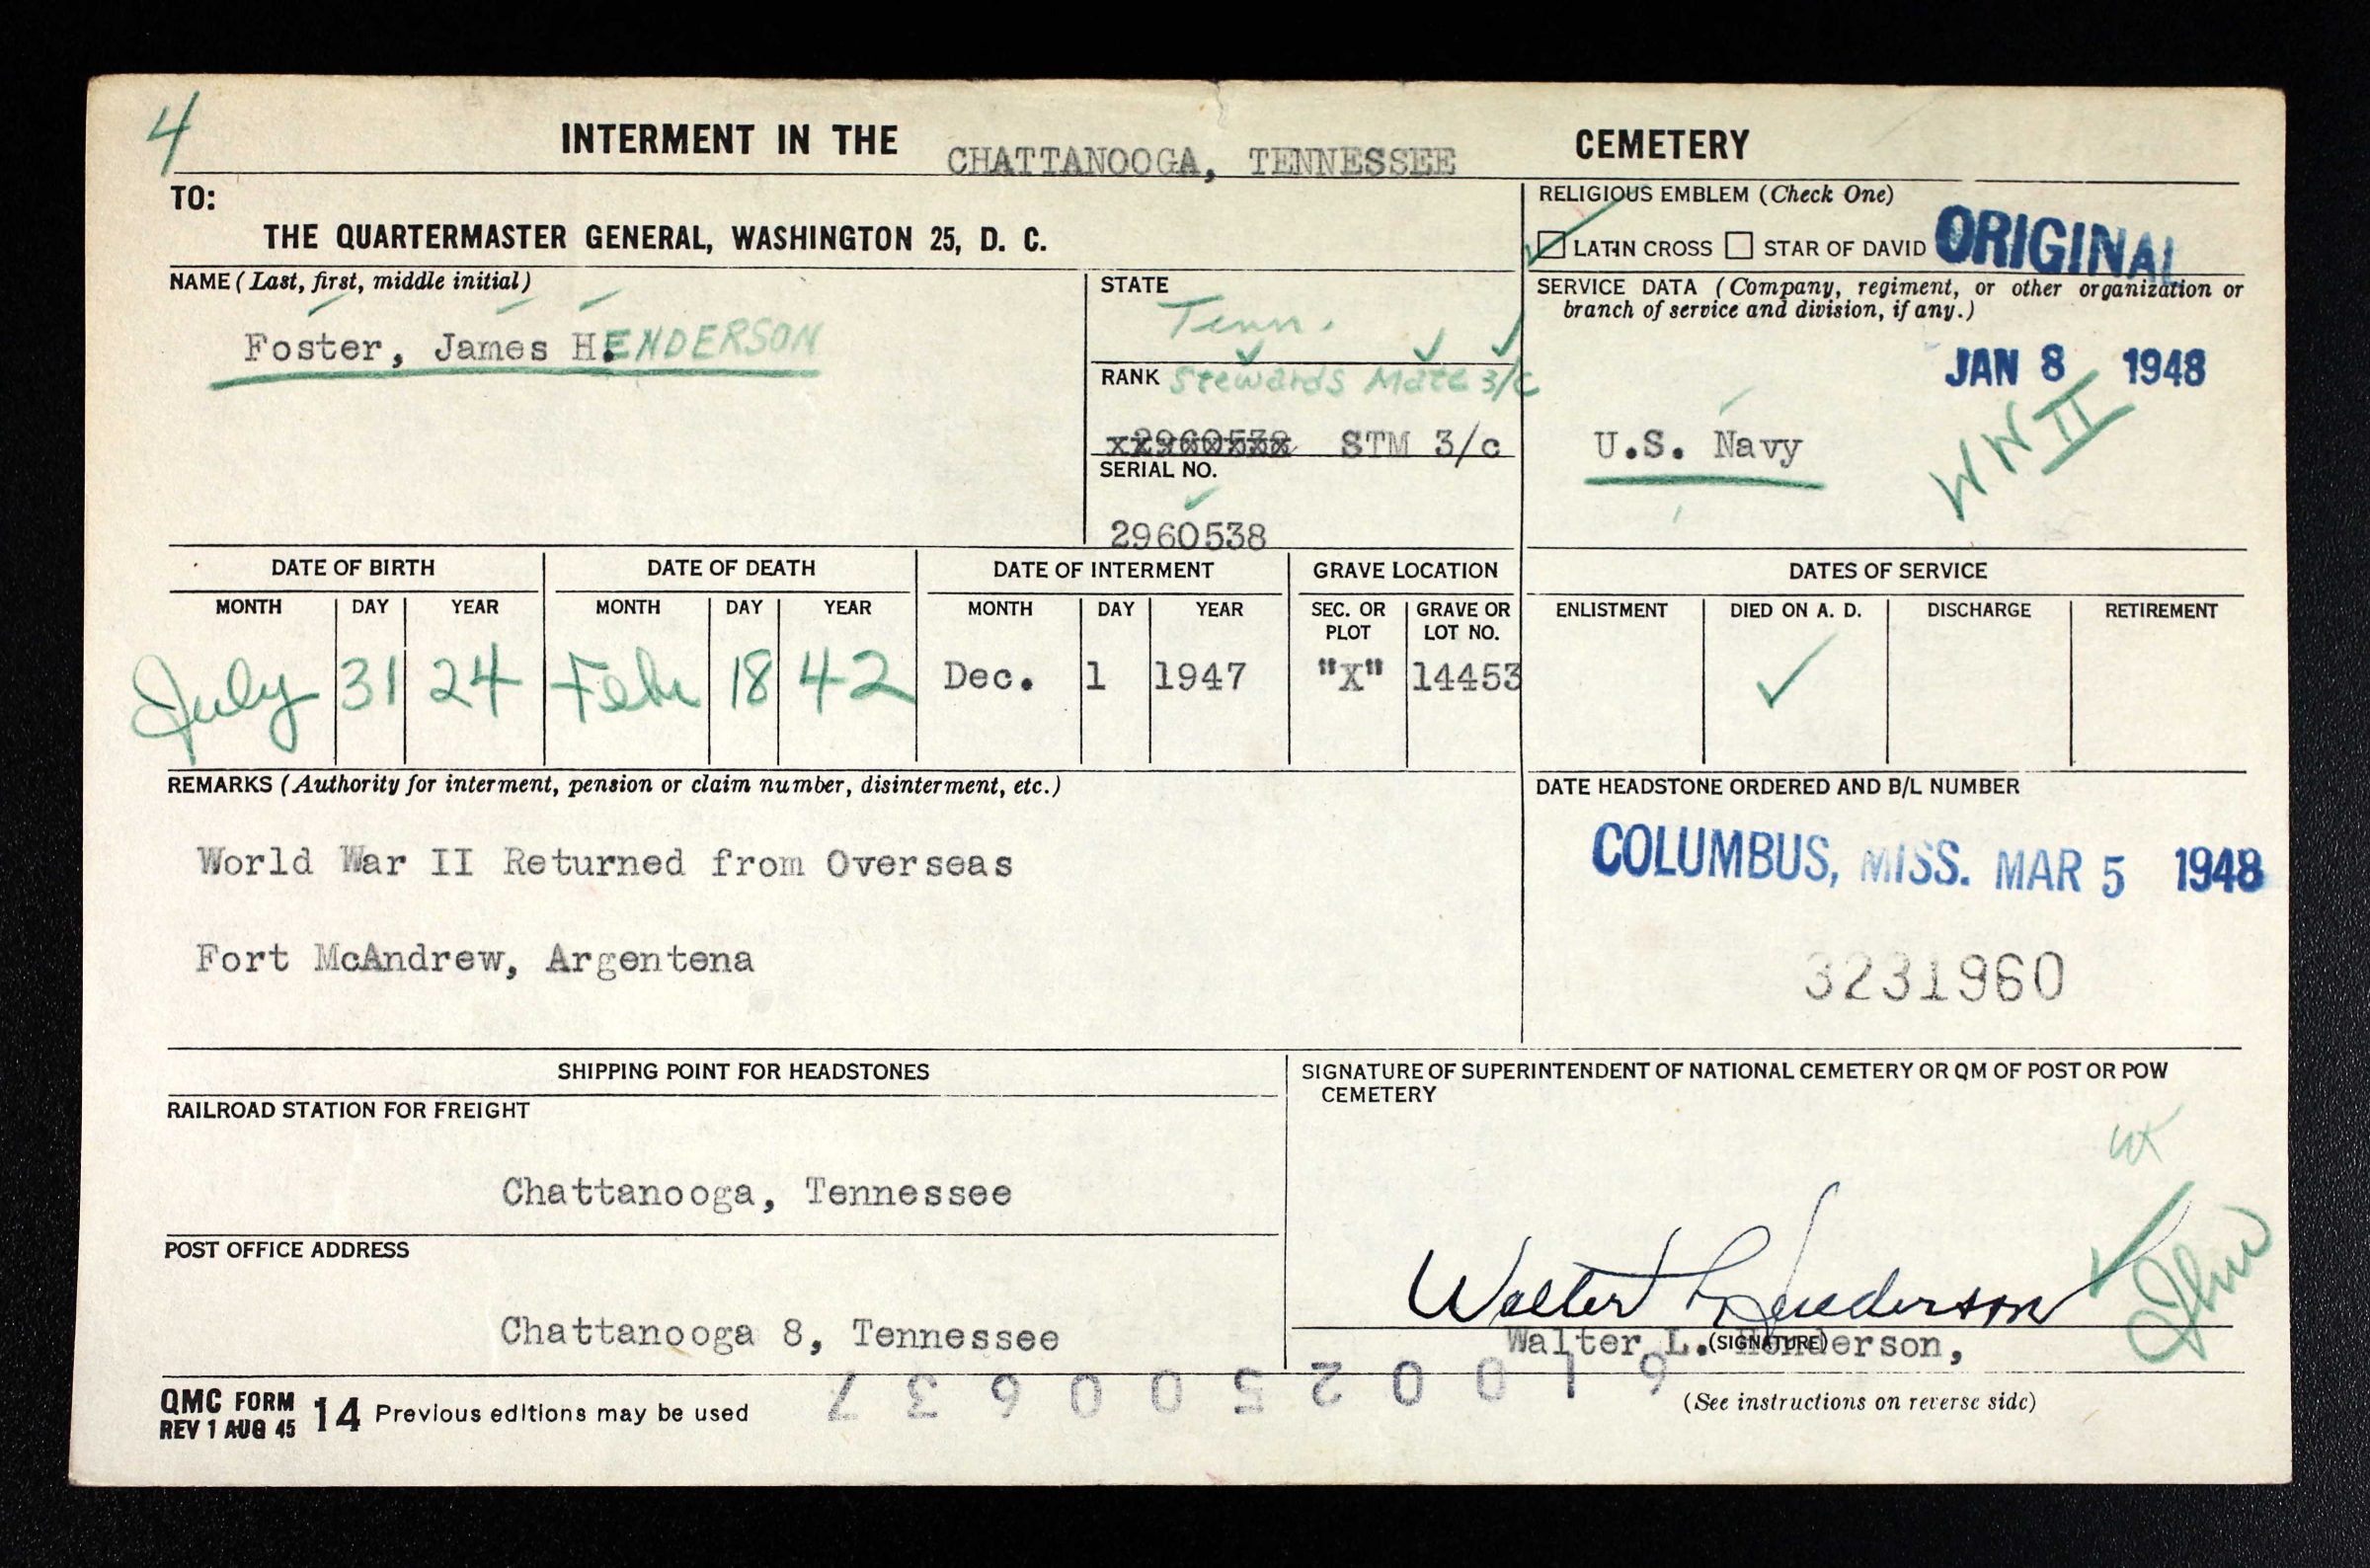 4
INTERMENT IN THE CHATTANOOGA, TENNESSEE CEMETERY
TO:
THE QUARTERMASTER GENERAL, WASHINGTON 25, D. C.
RELIGIOUS EMBLEM (Check One)
LATIN CROSS STAR OF DAVID
ORIGINAL
NAME (Last, first, middle initial)
Foster, James H. ENDERSON
STATE
Tenn.
RANK Stewards Mate 3/c
2960538 STM 3/c
SERIAL NO.
2960538
SERVICE DATA (Company, regiment, or other organization or
branch of service and division, if any.)
JAN 8 1948
U.S. Navy
WW II
DATE OF BIRTH
MONTH DAY YEAR
July 31 24
DATE OF DEATH
MONTH DAY YEAR
Feb 18 42
DATE OF INTERMENT
MONTH DAY YEAR
Dec. 1 1947
GRAVE LOCATION
SEC. OR PLOT
GRAVE OR LOT NO.
"X" 14453
DATES OF SERVICE
ENLISTMENT DIED ON A. D. DISCHARGE RETIREMENT
REMARKS (Authority for interment, pension or claim number, disinterment, etc.)
World War II Returned from Overseas
Fort McAndrew, Argentena
DATE HEADSTONE ORDERED AND B/L NUMBER
COLUMBUS, MISS. MAR 5 1948
3231960
SHIPPING POINT FOR HEADSTONES
RAILROAD STATION FOR FREIGHT
Chattanooga, Tennessee
POST OFFICE ADDRESS
Chattanooga 8, Tennessee
SIGNATURE OF SUPERINTENDENT OF NATIONAL CEMETERY OR QM OF POST OR POW
CEMETERY
Walter L Henderson
(SIGNATURE)
Walter L. Henderson,
73600520019
QMC FORM 14 Previous editions may be used
REV 1 AUG 45
(See instructions on reverse side)